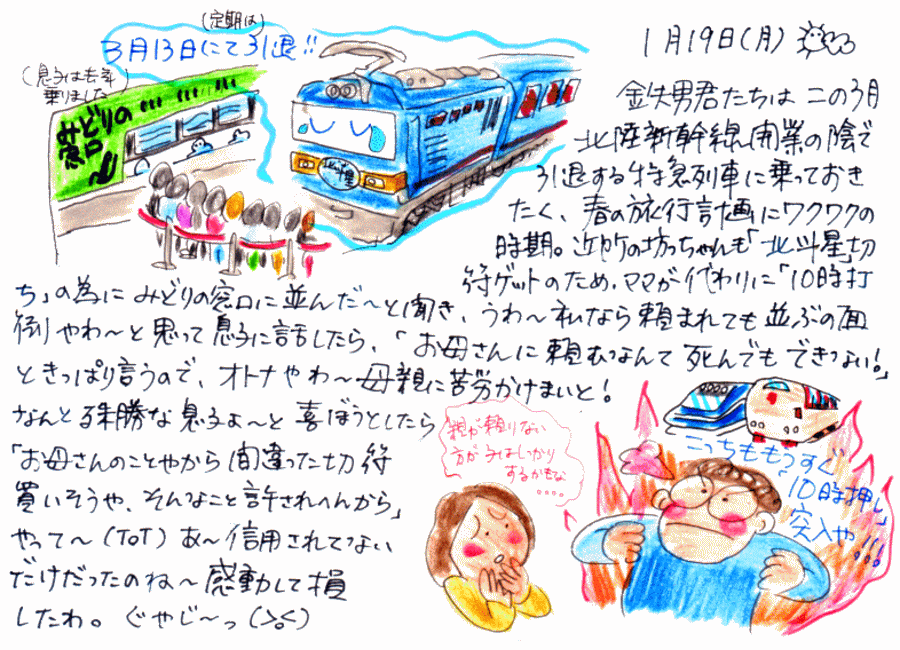 (定期は)
3月13日にて引退!!
(息子は去年
乗りました)
みどりの
窓口
北斗星
1月19日(月)
鉄男君たちはこの3月
北陸新幹線開業の陰で
引退する特急列車に乗っておき
たく、春の旅行計画にワクワクの
時期。近所の坊ちゃんも「北斗星」切
符ゲットのため、ママが代わりに「10時打
ち」の為にみどりの窓口に並んだ〜と聞き、うわ〜私なら頼まれても並ぶの面
倒やわ〜と思って息子に話したら、「お母さんに頼むなんて死んでもできない!」
ときっぱり言うので、オトナやわ〜母親に苦労かけまいと!
なんと殊勝な息子よ〜と喜ぼうとしたら
「お母さんのことやから間違った切符
買いそうや、そんなこと許されへんから」
やって〜(ToT)あ〜信用されてない
だけだったのね〜感動して損
したわ。ぐやじ〜っ(>。<)
親が頼りない
方が子はしっかり
するかもな
....
こっちももうすぐ
「10時押し」
突入や!!!